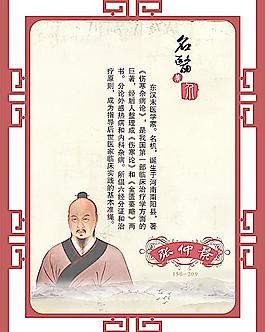 名医
东汉末医学家。名机，诞生于河南南阳县，著
《伤寒杂病论》，是我国第一部临床治疗学方面的
巨著，经后人整理成《伤寒论》和《金匮要略》两
书。分论外感热病和内科杂病。所倡六经分证和治
疗原则，成为指导后世医家临床实践的基本准绳。
张仲景
150-209